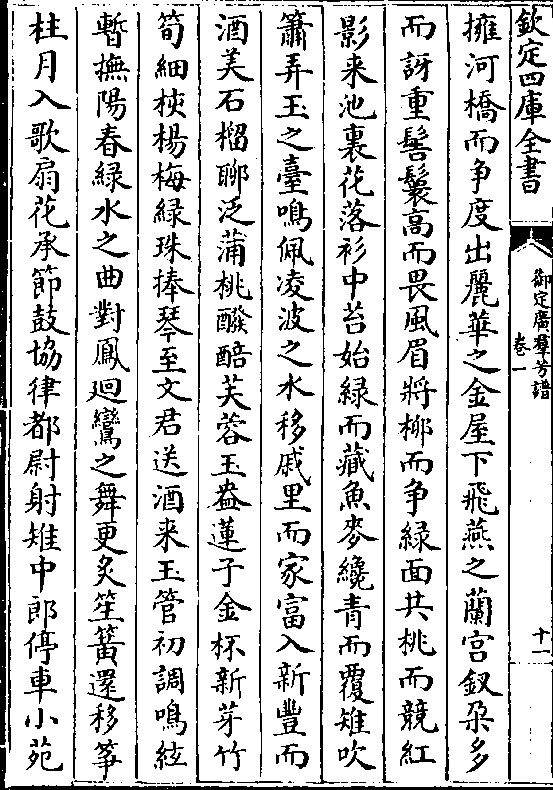 欽定四庫全書
御定廣羣芳譜
卷一
十一
擁河橋而争度出麗華之金屋下飛燕之蘭宫釵朶多
而訝重髻鬟高而畏風眉將柳而争緑面共桃而競紅
影来池裏花落衫中苔始緑而藏魚麥纔青而覆雉吹
簫弄玉之臺鳴佩凌波之水移戚里而家富入新豐而
酒美石榴聊泛蒲桃醱醅芙蓉玉盌蓮子金杯新芽竹
筍細核楊梅緑珠捧琴至文君送酒来玉管初調鳴絃
暫撫陽春緑水之曲對鳳廻鸞之舞更炙笙簧還移筝
柱月入歌扇花承節鼓協律都尉射雉中郎停車小苑